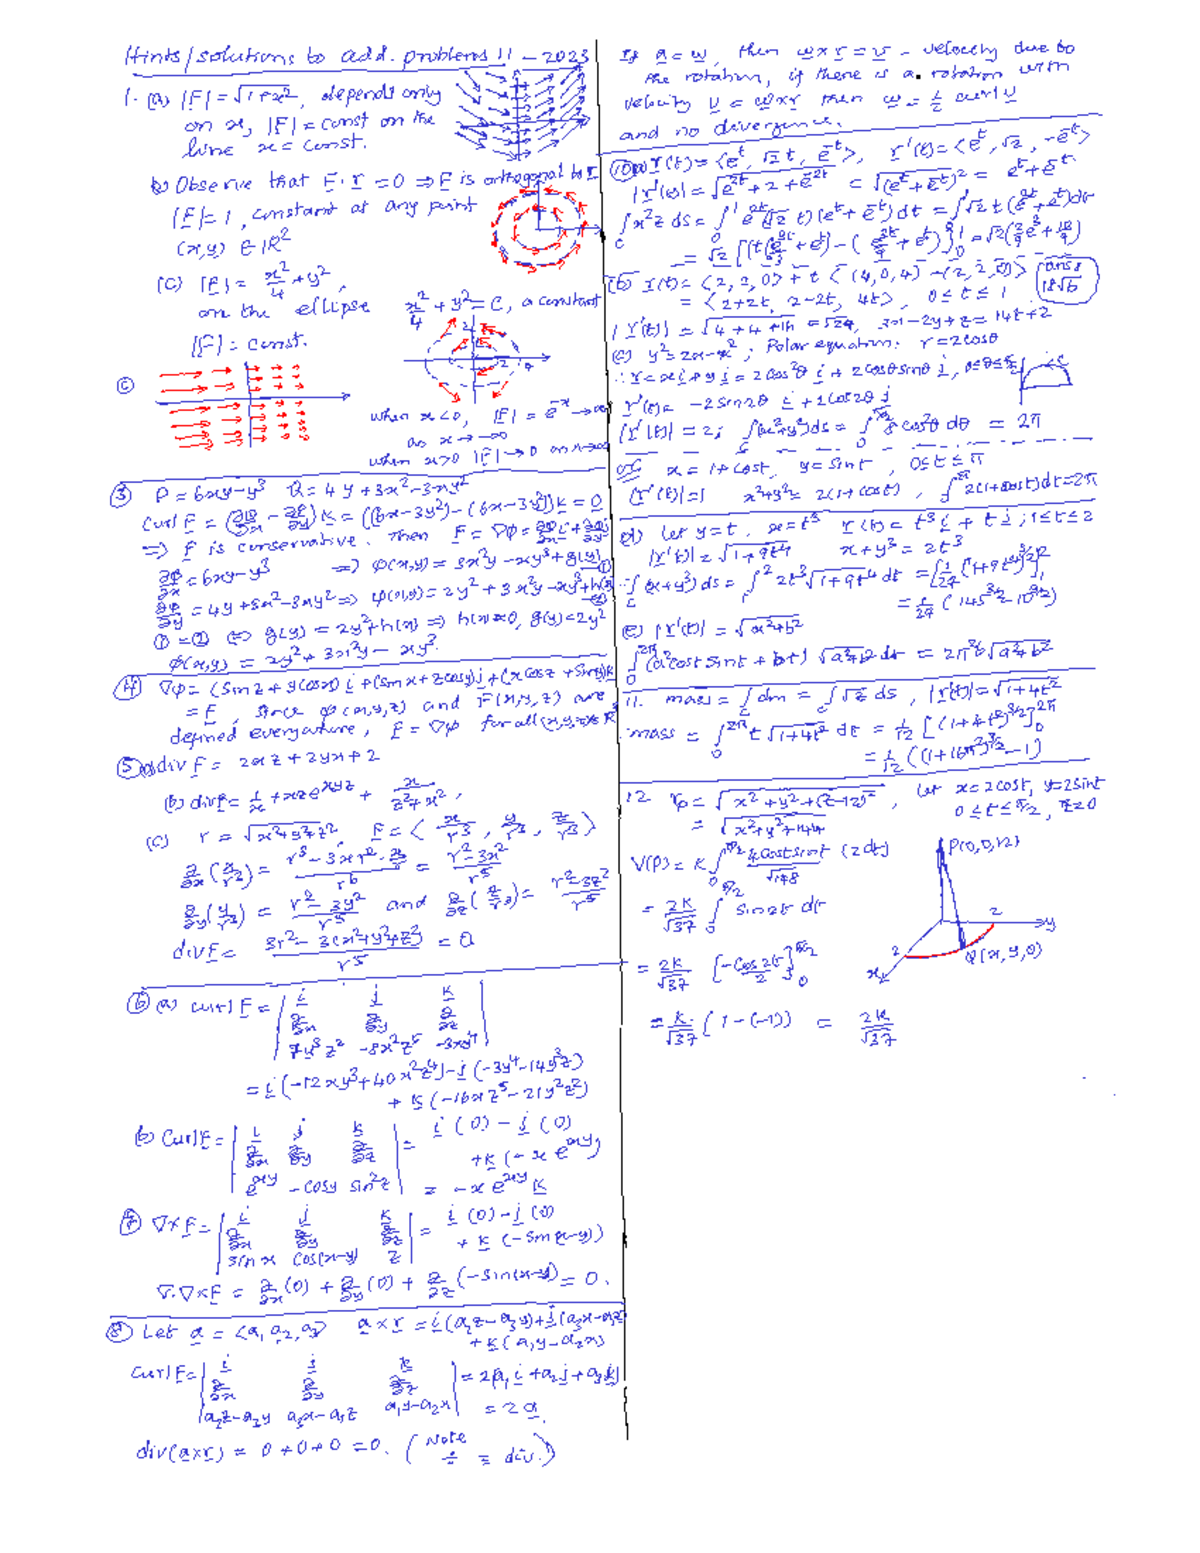 Hints/solutions to add. problems 11 – 2023
1. (a) |F| = √1+x², depends only
on x, |F| = const on the
line x = const.
(b) Observe that F·r = 0 ⇒ F is orthogonal to r
|F| = 1, constant at any point
(x,y) ∈ ℝ²
(c) |F| = x²/4 + y²,
on the ellipse x²/4 + y² = C, a constant
|F| = const.
(c)
when x<0, |F| = e^-x → ∞
as x → -∞
when x>0 |F| → 0 as x → ∞
(3) P = 6xy-y³ Q = 4y+3x²-3xy²
Curl F = (∂Q/∂x - ∂P/∂y) k = ((6x-3y²)-(6x-3y²)) k = 0
⇒ F is conservative. Then F = ∇φ = ∂φ/∂x i + ∂φ/∂y j
∂φ/∂x = 6xy-y³ ⇒ φ(x,y) = 3x²y - xy³ + g(y) (1)
∂φ/∂y = 4y+3x²-3xy² ⇒ φ(x,y) = 2y² + 3x²y - xy³ + h(x) (2)
(1) = (2) ⇔ g(y) = 2y² + h(x) ⇒ h(x) = 0, g(y) = 2y²
φ(x,y) = 2y² + 3x²y - xy³.
(4) ∇φ = (sin z + y cos x) i + (sin x + z cos y) j + (x cos z + sin y) k
= F, since φ(x,y,z) and F(x,y,z) are
defined everywhere, F = ∇φ for all (x,y,z) ∈ ℝ
(5) (a) div F = 2xz + 2yx + 2
(b) div F = 1/x + xz e^xyz + x/(z²+x²),
(c) r = √x²+y²+z², F = < x/r³, y/r³, z/r³ >
∂/∂x (x/r³) = (r³ - 3x r² · x/r)/r⁶ = (r²-3x²)/r⁵
∂/∂y (y/r³) = (r²-3y²)/r⁵ and ∂/∂z (z/r³) = (r²-3z²)/r⁵
div F = (3r² - 3(x²+y²+z²))/r⁵ = 0
(6) (a) curl F = | i j k
∂/∂x ∂/∂y ∂/∂z
7y³z² -8x²z⁵ -3xy⁴ |
= i (-12xy³+40x²z⁴) - j (-3y⁴-14y³z)
+ k (-16xz⁵-21y²z²)
(b) Curl F = | i j k
∂/∂x ∂/∂y ∂/∂z
e^xy -cos y sin²z |
= i (0) - j (0)
+ k (-x e^xy)
= -x e^xy k
(7) ∇×F = | i j k
∂/∂x ∂/∂y ∂/∂z
sin x cos(x-y) z |
= i (0) - j (0)
+ k (-sin(x-y))
∇·∇×F = ∂/∂x (0) + ∂/∂y (0) + ∂/∂z (-sin(x-y)) = 0.
(8) Let a = <a₁ a₂, a₃> a × r = i (a₂z-a₃y) + j (a₃x-a₁z)
+ k (a₁y-a₂x)
Curl F = | i j k
∂/∂x ∂/∂y ∂/∂z
a₂z-a₃y a₃x-a₁z a₁y-a₂x |
= 2(a₁ i + a₂ j + a₃ k)
= 2a.
div(a×r) = 0+0+0 = 0. (Note ÷ = div.)
If a = w, then w × r = v – velocity due to
the rotation, if there is a rotation with
velocity v = w×r then w = ½ curl v
and no divergence.
(10) (a) r(t) = <e^t, √2 t, e^-t>, r'(t) = <e^t, √2, -e^-t>
|r'(t)| = √e^2t + 2 + e^-2t = √(e^t+e^-t)² = e^t+e^-t
∫c x²z ds = ∫₀¹ e^2t (√2 t)(e^t+e^-t) dt = ∫√2 t (e^3t+e^t) dt
(b) r(t) = <2,2,0> + t <(4,0,4)-(2,2,0)>
= <2+2t, 2-2t, 4t>, 0 ≤ t ≤ 1
ans: 18√6
|r'(t)| = √4+4+16 = √24, 3x-2y+z = 14t+2
(c) y² = 2x-x²; Polar equation: r = 2cosθ
∴ r = x i + y j = 2cos²θ i + 2cosθ sinθ j, 0≤θ≤π/2
r'(t) = -2sin2θ i + 2cos2θ j
|r'(t)| = 2; ∫c (x²+y²) ds = ∫₀^π/2 8cos²θ dθ = 2π
OR x = 1+cos t, y = sin t, 0≤t≤π
|r'(t)| = 1 x²+y² = 2(1+cos t), ∫₀^π 2(1+cos t) dt = 2π
(d) Let y = t, x = t³ r(t) = t³ i + t j; 1≤t≤2
|r'(t)| = √1+9t⁴ x+y³ = 2t³
∴ ∫c (x+y³) ds = ∫₁² 2t³ √1+9t⁴ dt = [1/27 (1+9t⁴)^3/2]₁²
= 1/27 (145^3/2 - 10^3/2)
(e) |r'(t)| = √a²+b²
∫₀^2π (a² cos t sin t + bt) √a²+b² dt = 2π²b √a²+b²
11. mass = ∫c dm = ∫c √z ds, |r'(t)| = √1+4t²
mass = ∫₀^2π t √1+4t² dt = 1/12 [(1+4t²)^3/2]₀^2π
= 1/12 ((1+16π²)^3/2 - 1)
12 r_p = √x²+y²+(z-12)², Let x = 2cos t, y = 2sin t
0≤t≤π/2, z = 0
= √x²+y²+144
V(P) = K ∫₀^π/2 4cos t sin t/√148 (2dt)
= 2K/√37 ∫₀^π/2 sin2t dt
= 2K/√37 [-cos2t/2]₀^π/2
= K/√37 (1-(-1)) = 2K/√37
P(0,0,12)
2
y
2
x
Q(x,y,0)